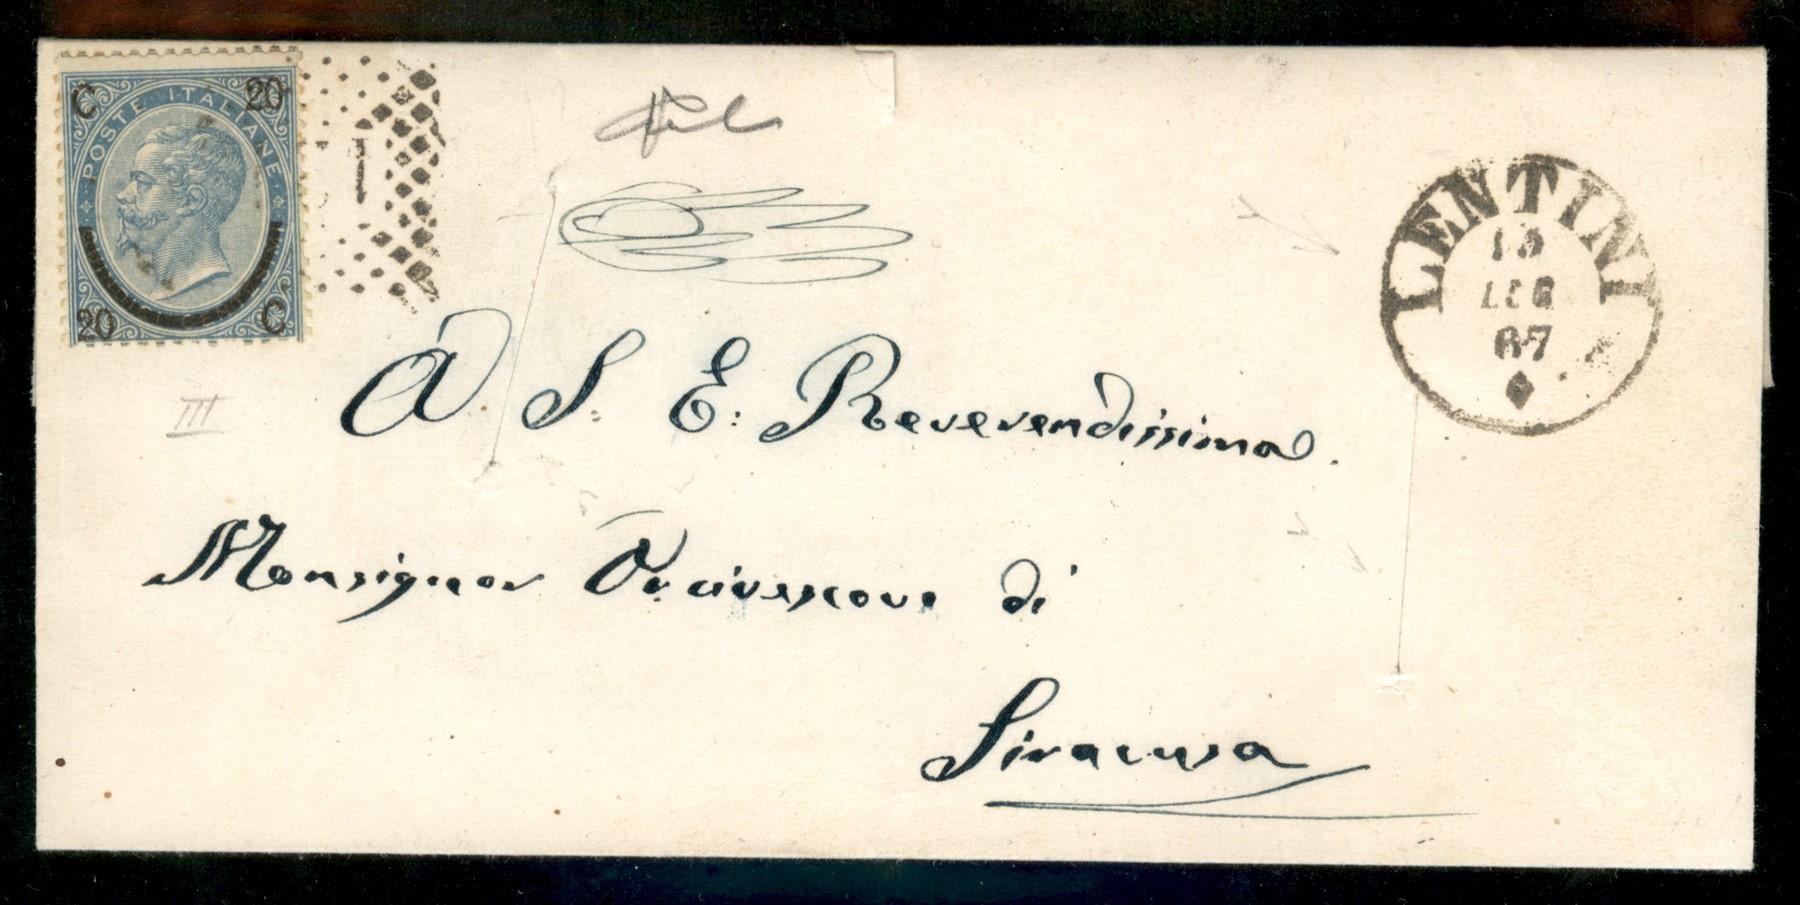 C 20
POSTE ITALIANE
20 C
LENTINI
LUG
67
III
A S: E: Reverendissima.
Monsignor Arcivescovo di
Siracusa